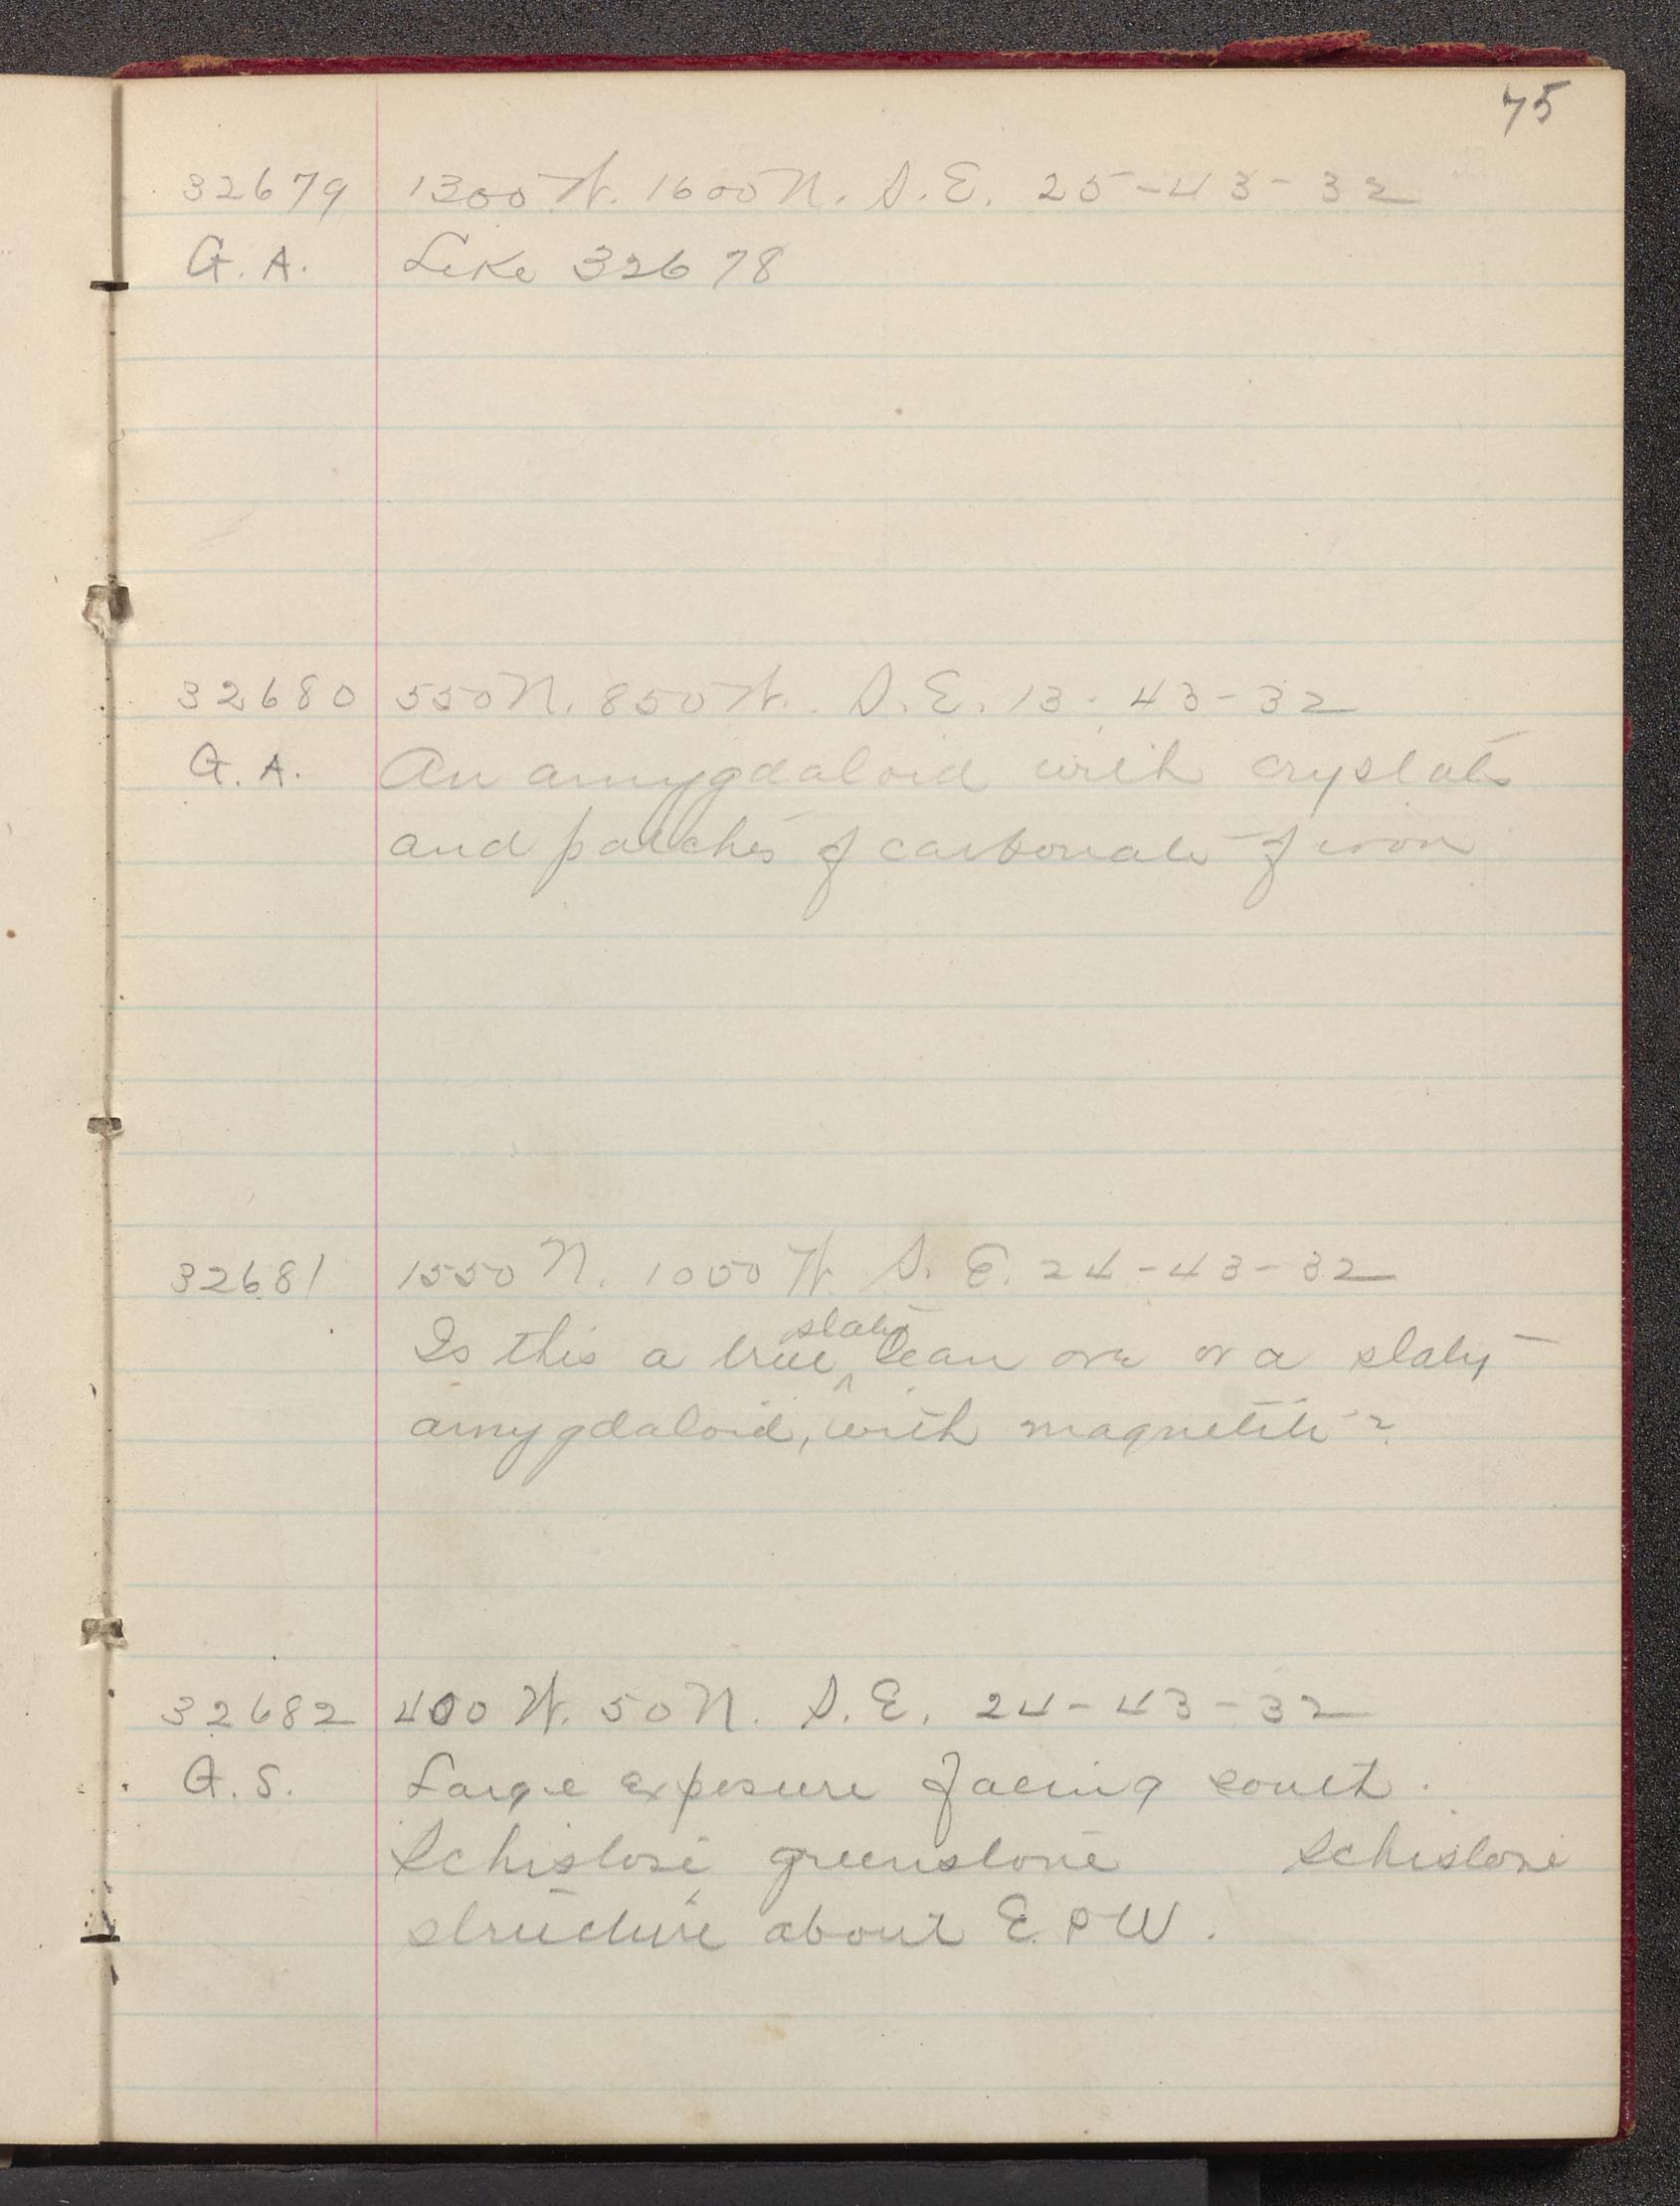 75
32679 1300 W. 1600 N. S.E. 25-43-32
G.A. Like 32678
32680 550 N. 850 W. S.E. 13-43-32
G.A. An amygdaloid with crystals
and patches of carbonate of iron
32681 1550 N. 1000 W. S.E. 24-43-32
Is this a true slaty lean ore or a slaty
amygdaloid, with magnetite?
32682 400 W. 50 N. S.E. 24-43-32
G.S. Large exposure facing south.
Schistose greenstone Schistose
structure about E & W.